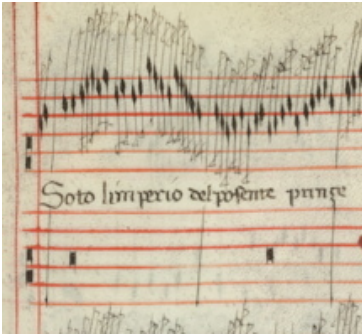 Soto limperio del posente prince